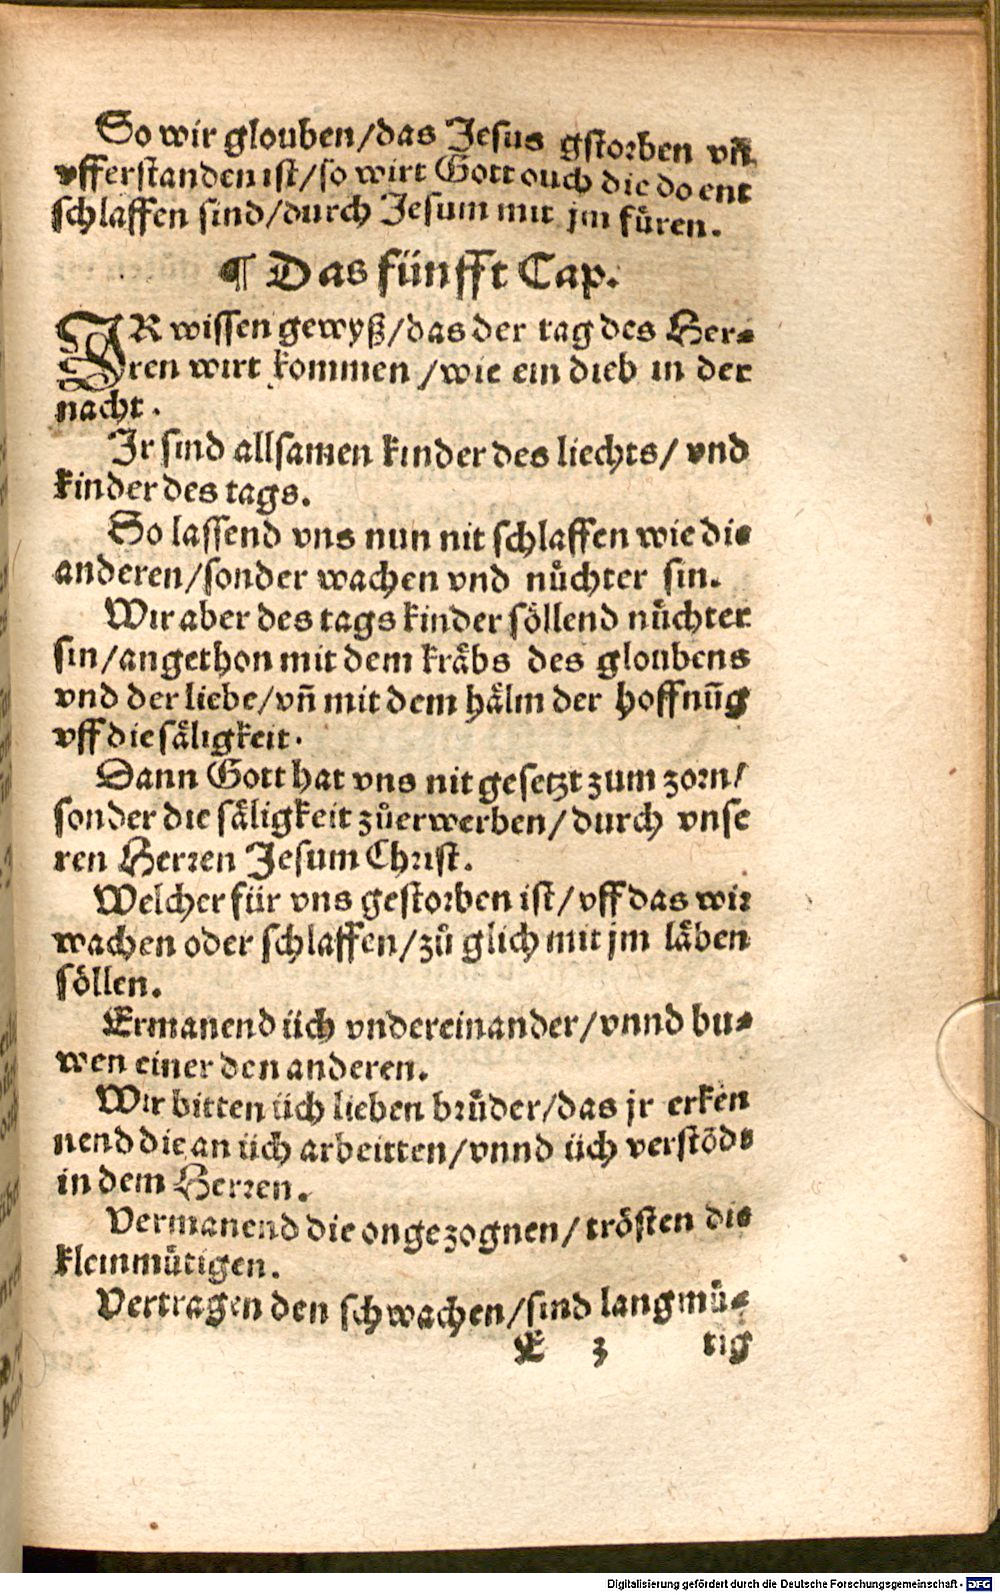 So wir glouben/das Jesus gstorben vñ
vfferstanden ist/so wirt Gott ouch die do ent
schlaffen sind/durch Jesum mit jm fůren.
¶ Das fünfft Cap.
JR wissen gewyß/das der tag des Her⸗
ren wirt kommen/wie ein dieb in der
nacht.
Jr sind allsamen kinder des liechts/ vnd
kinder des tags.
So lassend vns nun nit schlaffen wie die
anderen/sonder wachen vnd nůchter sin.
Wir aber des tags kinder söllend nůchter
sin/angethon mit dem kräbs des gloubens
vnd der liebe/vñ mit dem hälm der hoffnūg
vff die säligkeit.
Dann Gott hat vns nit gesetzt zum zorn/
sonder die säligkeit zůerwerben/durch vnse
ren Herren Jesum Christ.
Welcher für vns gestorben ist/vff das wir
wachen oder schlaffen/zů glich mit jm läben
söllen.
Ermanend üch vndereinander/vnnd bu⸗
wen einer den anderen.
Wir bitten üch lieben brůder/das jr erken
nend die an üch arbeitten/vnnd üch verstöds
in dem Herren.
Vermanend die ongezognen/trösten die
kleinmůtigen.
Vertragen den schwachen/sind langmů⸗
E 3 tig
Digitalisierung gefördert durch die Deutsche Forschungsgemeinschaft - DFG